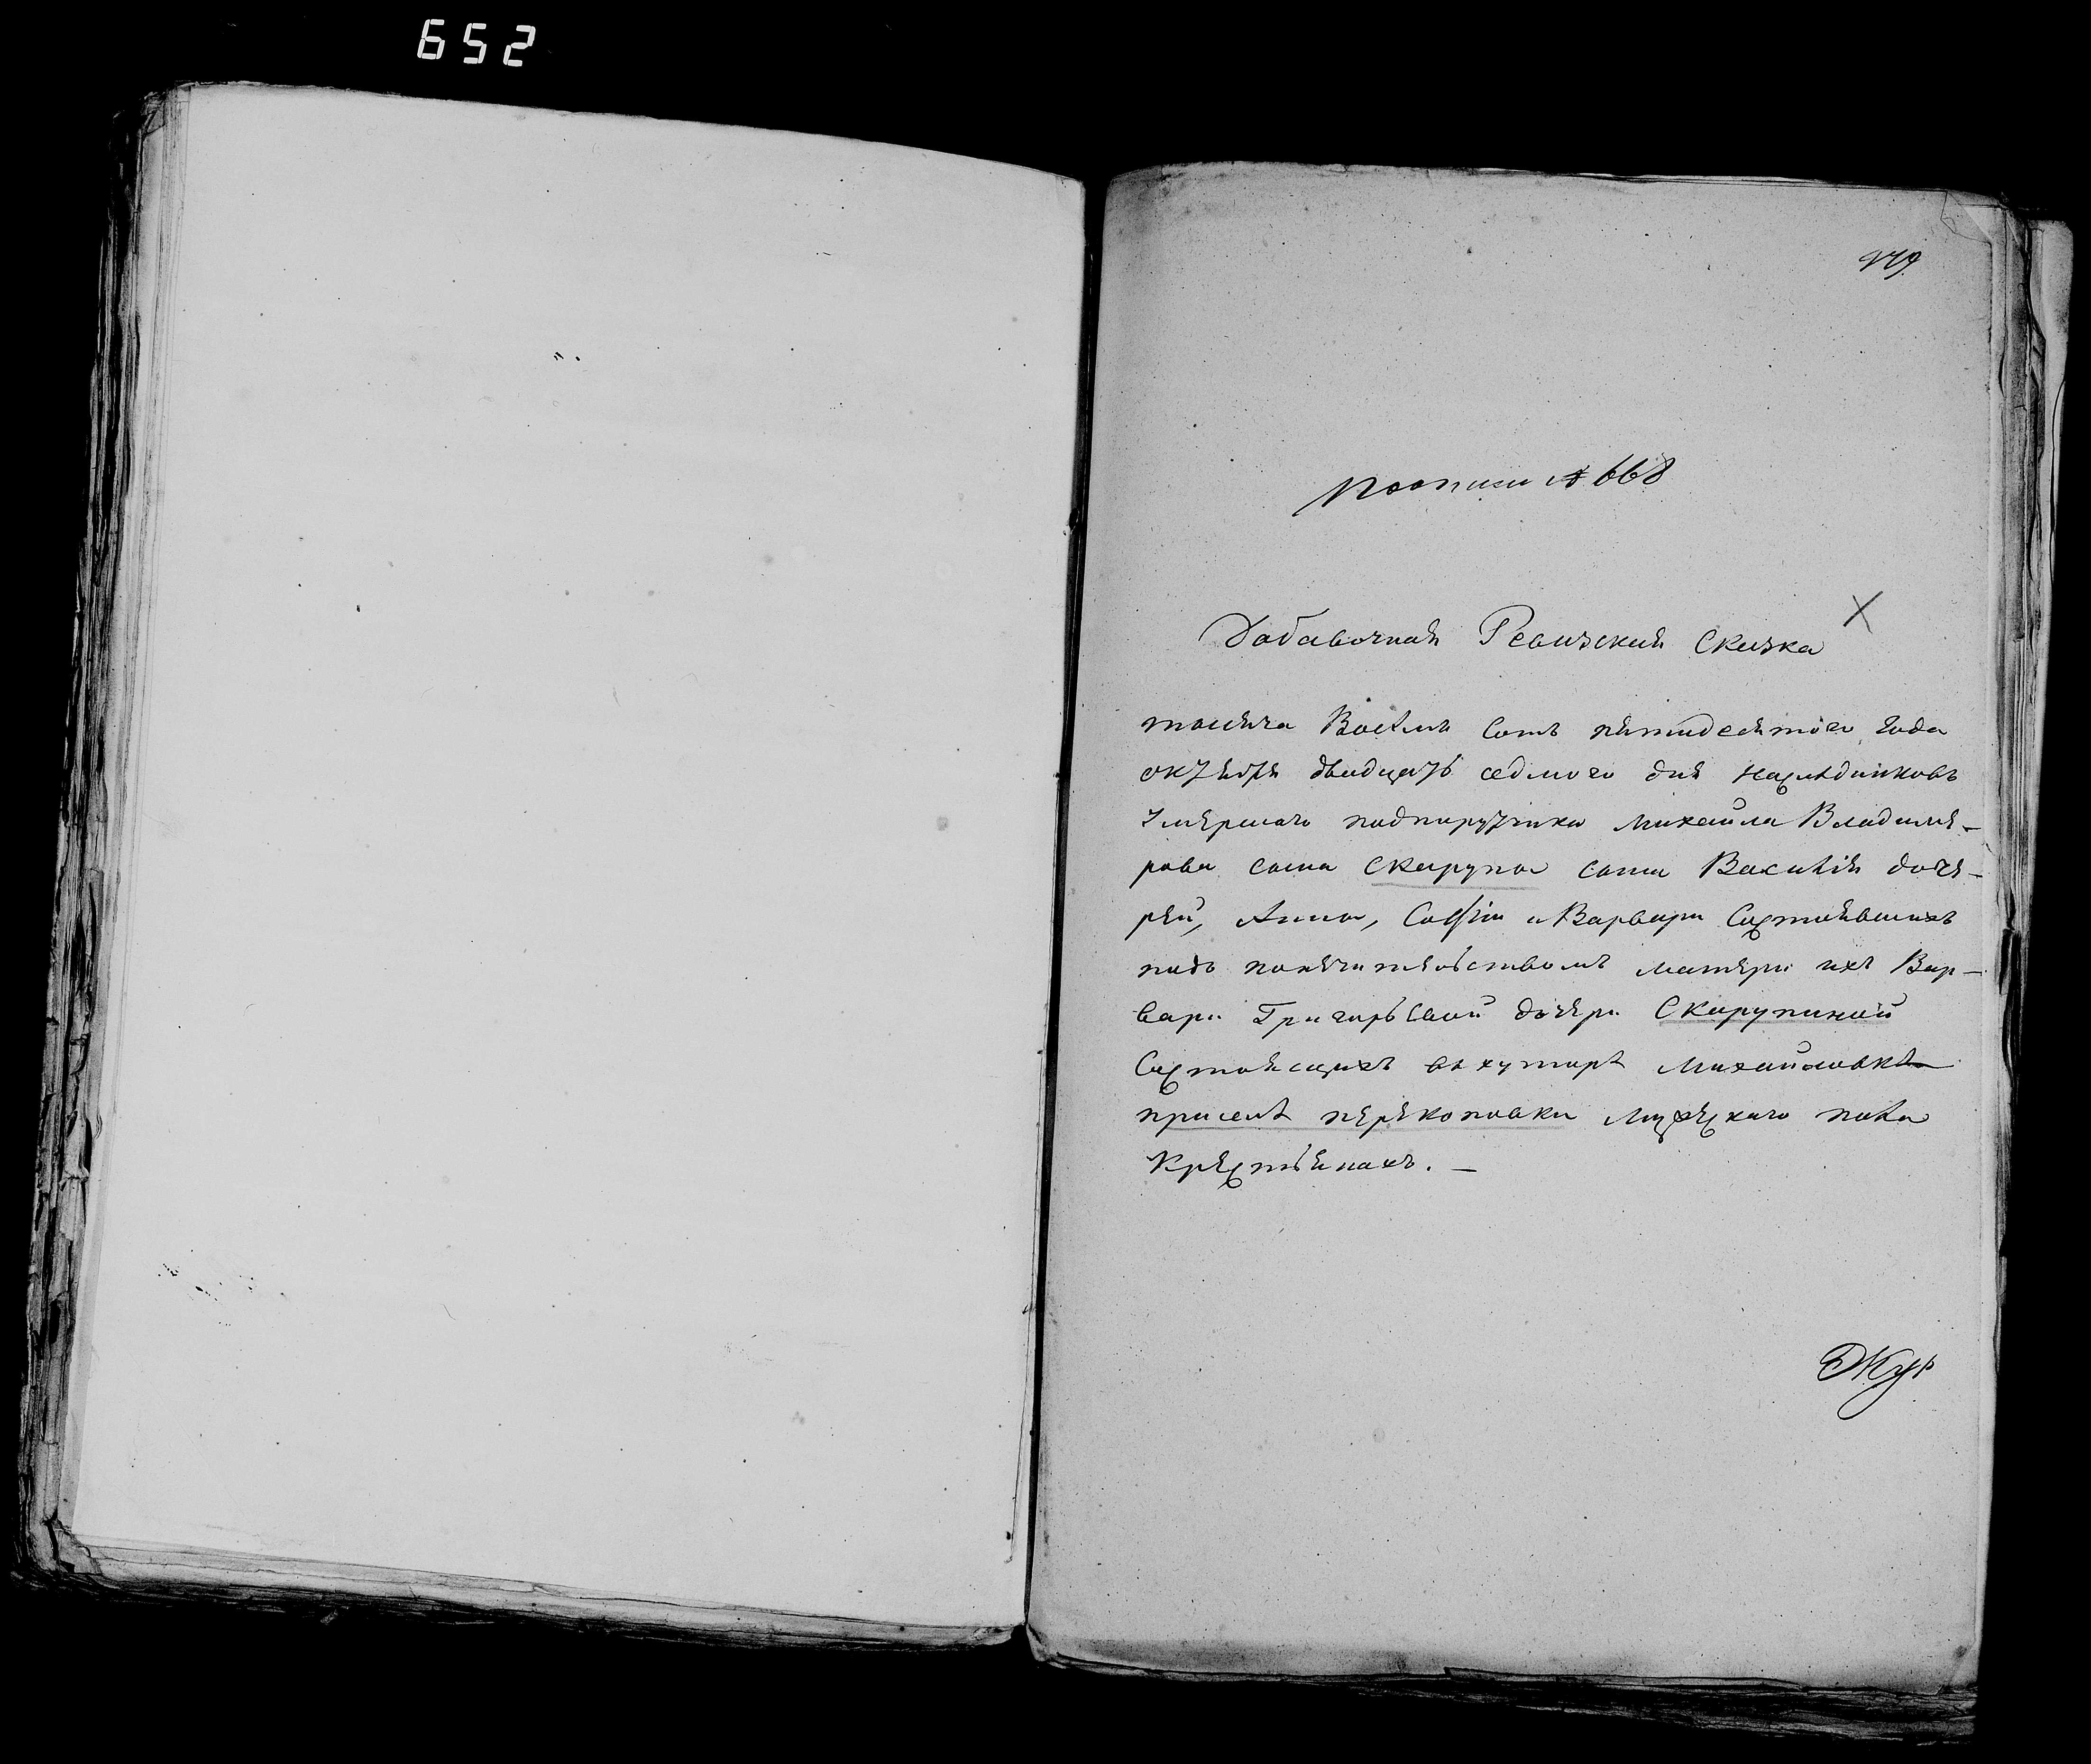 652
949
по описи № 668
Добавочная Ревизская Сказка
тысяча Восемь Сотъ пятидесятого года
октября двадцать седмого дня наслѣдниковъ
умершаго подпоручика Михайла Владиме-
рова сына Скорупы сына Василія доче-
рей, Анны, Софіи и Варвары Состоявшихъ
подъ попечительствомъ матери ихъ Вар-
вары Григорьевой дочери Скорупиной
Состоящихъ въ хуторѣ Михайловкѣ
при селѣ перекоповки
Крестьянахъ. —